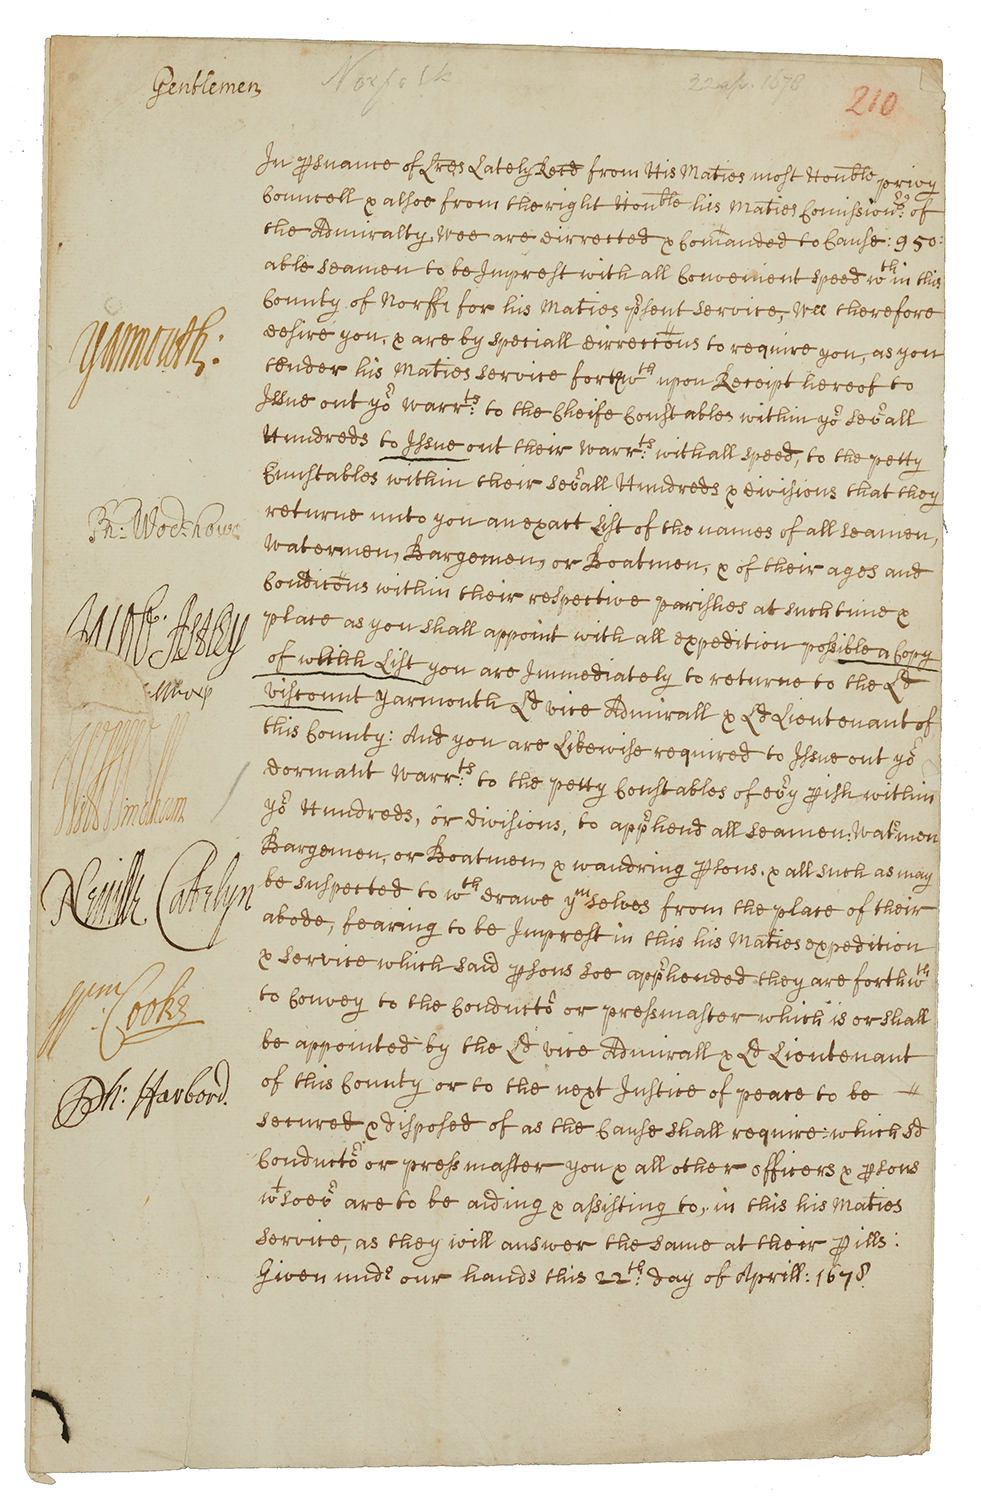 Gentlemen
Norfolk
22 ap. 1678
210
In psuance of Lres Lately Recd from His Maties most Honble privy
Councell & alsoe from the right Honble his Maties Comissionrs: of
the Admiralty, Wee are dirrected & Comanded to Cause: 950:
able seamen to be Imprest with all Convenient speed wthin this
County of Norff: for his Maties psent service, Wee therefore
desire you, & are by speciall dirrections to require you, as you
tender his Maties service forthwth upon Receipt hereof to
Issue out yor warrts: to the Cheife Constables within yor sevall
Hundreds to Issue out their warrts: with all speed, to the petty
Cunstables within their sevall Hundreds & divisions that they
returne unto you an exact List of the names of all seamen,
watermen, Bargemen, or Boatmen, & of their ages and
Condicons within their respective parishes at such time &
place as you shall appoint with all expedition possible a Copy
of which List you are Immediately to returne to the Ld
Viscount Yarmouth Ld vice Admirall & Ld Lieutenant of
this County: And you are Likewise required to Issue out yor
dormant warrts: to the petty Constables of evy pish within
yor Hundreds, or divisions, to apphend all seamen: Watmen
Bargemen, or Boatmen, & wandring psons, & all such as may
be suspected to wth drawe ymselves from the place of their
abode, fearing to be Imprest in this his Maties expedition
& service which said psons soe apphended they are forthwth
to Convey to the Conductor or pressmaster which is or shall
be appointed by the Ld vice Admirall & Ld Lieutenant
of this County or to the next Justice of peace to be
secured & disposed of as the Cause shall require: which sd
Conductor or pressmaster you & all other officers & psons
wtsoevr are to be aiding & assisting to, in this his Maties
service, as they will answer the same at their pills:
Given undr our hands this 22th: day of Aprill: 1678
Yarmouth:
Ph: Wodehouse
Astley
Will Windham
Nevill Catelyn
Wm: Cooke
Ph: Harbord.